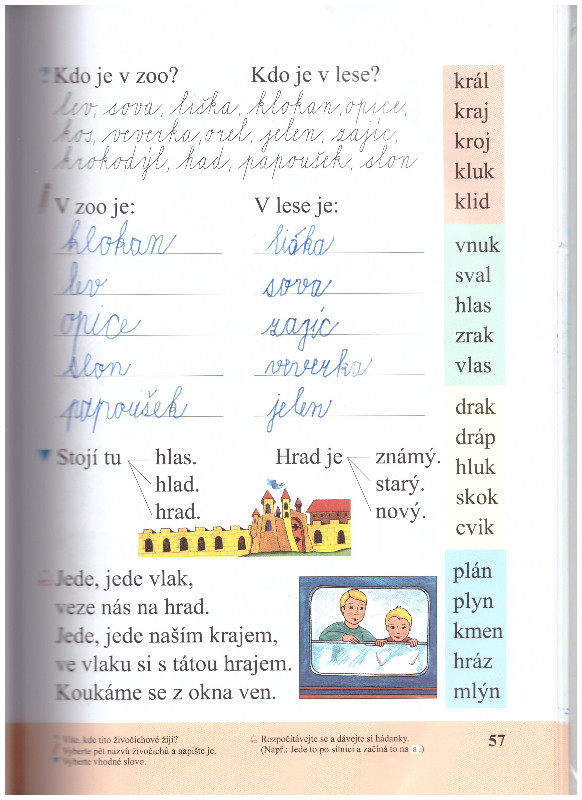 Kdo je v zoo? Kdo je v lese?
lev, sova, liška, klokan, opice,
kos, veverka, orel, jelen, zajíc,
krokodýl, had, papoušek, slon
V zoo je: V lese je:
klokan liška
lev sova
opice zajíc
slon veverka
papoušek jelen
Stojí tu hlas. Hrad je známý.
hlad. starý.
hrad. nový.
Jede, jede vlak,
veze nás na hrad.
Jede, jede naším krajem,
ve vlaku si s tátou hrajem.
Koukáme se z okna ven.
král
kraj
kroj
kluk
klid
vnuk
sval
hlas
zrak
vlas
drak
dráp
hluk
skok
cvik
plán
plyn
kmen
hráz
mlýn
Víte, kde tito živočichové žijí?
Vyberte pět názvů živočichů a napište je.
Vyberte vhodné slovo.
Rozpočítávejte se a dávejte si hádanky.
(Např.: Jede to po silnici a začíná to na a.)
57